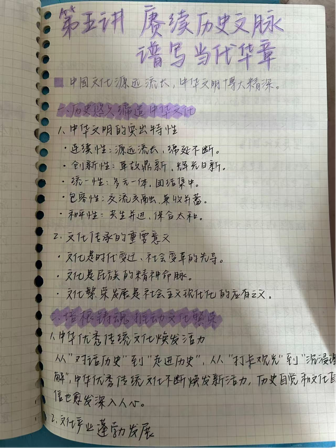 第五讲 赓续历史文脉
谱写当代华章
中国文化源远流长，中华文明博大精深。
1、中华文明的突出特性
·连续性：源远流长，绵延不断。
·创新性：革故鼎新，辉光日新。
·统一性：多元一体，团结集中。
·包容性：交流交融，兼收并蓄。
·和平性：共生并进，保合太和。
2、文化传承的重要意义
·文化是时代变迁、社会变革的先导。
·文化是民族的精神命脉。
·文化繁荣发展是社会主义现代化的应有之义。
1、中华优秀传统文化焕发活力
从“对话历史”到“走进历史”，从“打卡观光”到“沉浸
解”，中华优秀传统文化不断焕发新活力，历史自觉和文化自
信也愈发深入人心。
2、文化事业蓬勃发展